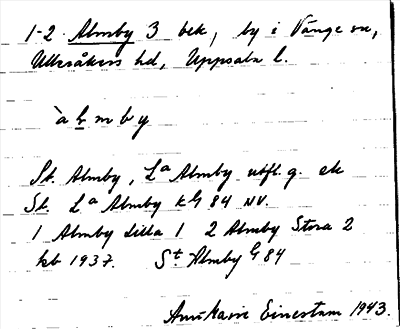 1-2 Almby 3 bek, by i Vänge sn,
Ulleråkers hd, Uppsala l.
à l m b y
St. Almby, La Almby utfl. g. ek
St. La Almby kG 84 NV.
1 Almby lilla 1 2 Almby Stora 2
kb 1937. St Almby G 84
Ann-Karin Einestam 1943.